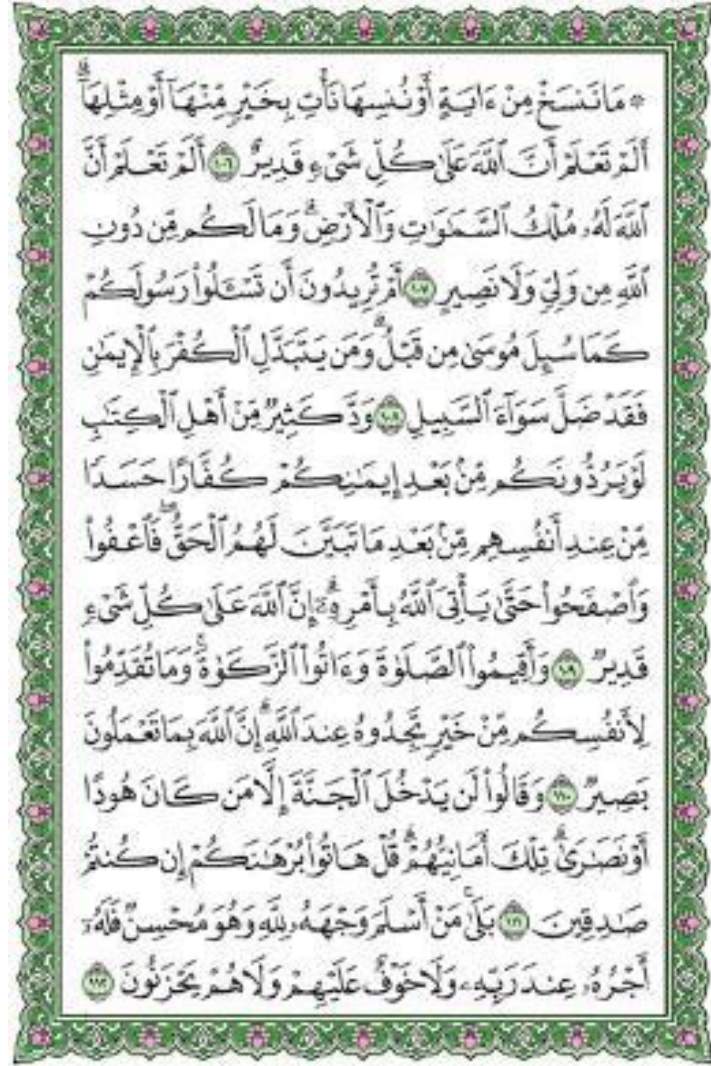 ۞ مَا نَنسَخْ مِنْ ءَايَةٍ أَوْ نُنسِهَا نَأْتِ بِخَيْرٍ مِّنْهَآ أَوْ مِثْلِهَآۗ
أَلَمْ تَعْلَمْ أَنَّ ٱللَّهَ عَلَىٰ كُلِّ شَىْءٍ قَدِيرٌ ۝١٠٦ أَلَمْ تَعْلَمْ أَنَّ
ٱللَّهَ لَهُۥ مُلْكُ ٱلسَّمَٰوَٰتِ وَٱلْأَرْضِۗ وَمَا لَكُم مِّن دُونِ
ٱللَّهِ مِن وَلِىٍّ وَلَا نَصِيرٍ ۝١٠٧ أَمْ تُرِيدُونَ أَن تَسْـَٔلُوا۟ رَسُولَكُمْ
كَمَا سُئِلَ مُوسَىٰ مِن قَبْلُۗ وَمَن يَتَبَدَّلِ ٱلْكُفْرَ بِٱلْإِيمَٰنِ
فَقَدْ ضَلَّ سَوَآءَ ٱلسَّبِيلِ ۝١٠٨ وَدَّ كَثِيرٌ مِّنْ أَهْلِ ٱلْكِتَٰبِ
لَوْ يَرُدُّونَكُم مِّنۢ بَعْدِ إِيمَٰنِكُمْ كُفَّارًا حَسَدًا
مِّنْ عِندِ أَنفُسِهِم مِّنۢ بَعْدِ مَا تَبَيَّنَ لَهُمُ ٱلْحَقُّۖ فَٱعْفُوا۟
وَٱصْفَحُوا۟ حَتَّىٰ يَأْتِىَ ٱللَّهُ بِأَمْرِهِۦٓۗ إِنَّ ٱللَّهَ عَلَىٰ كُلِّ شَىْءٍ
قَدِيرٌ ۝١٠٩ وَأَقِيمُوا۟ ٱلصَّلَوٰةَ وَءَاتُوا۟ ٱلزَّكَوٰةَۚ وَمَا تُقَدِّمُوا۟
لِأَنفُسِكُم مِّنْ خَيْرٍ تَجِدُوهُ عِندَ ٱللَّهِۗ إِنَّ ٱللَّهَ بِمَا تَعْمَلُونَ
بَصِيرٌ ۝١١٠ وَقَالُوا۟ لَن يَدْخُلَ ٱلْجَنَّةَ إِلَّا مَن كَانَ هُودًا
أَوْ نَصَٰرَىٰۗ تِلْكَ أَمَانِيُّهُمْۗ قُلْ هَاتُوا۟ بُرْهَٰنَكُمْ إِن كُنتُمْ
صَٰدِقِينَ ۝١١١ بَلَىٰۚ مَنْ أَسْلَمَ وَجْهَهُۥ لِلَّهِ وَهُوَ مُحْسِنٌ فَلَهُۥٓ
أَجْرُهُۥ عِندَ رَبِّهِۦ وَلَا خَوْفٌ عَلَيْهِمْ وَلَا هُمْ يَحْزَنُونَ ۝١١٢